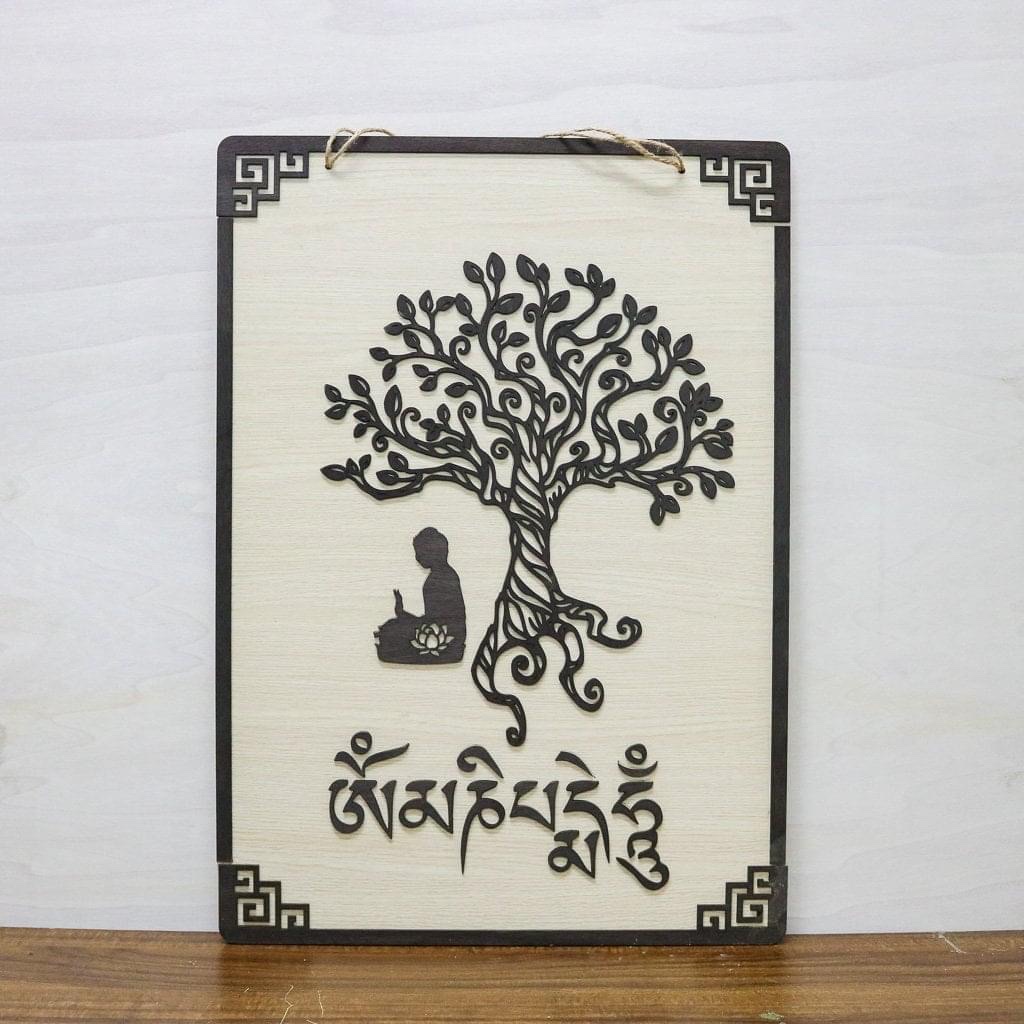 ༀམཎིཔདྨེཧཱུྃ